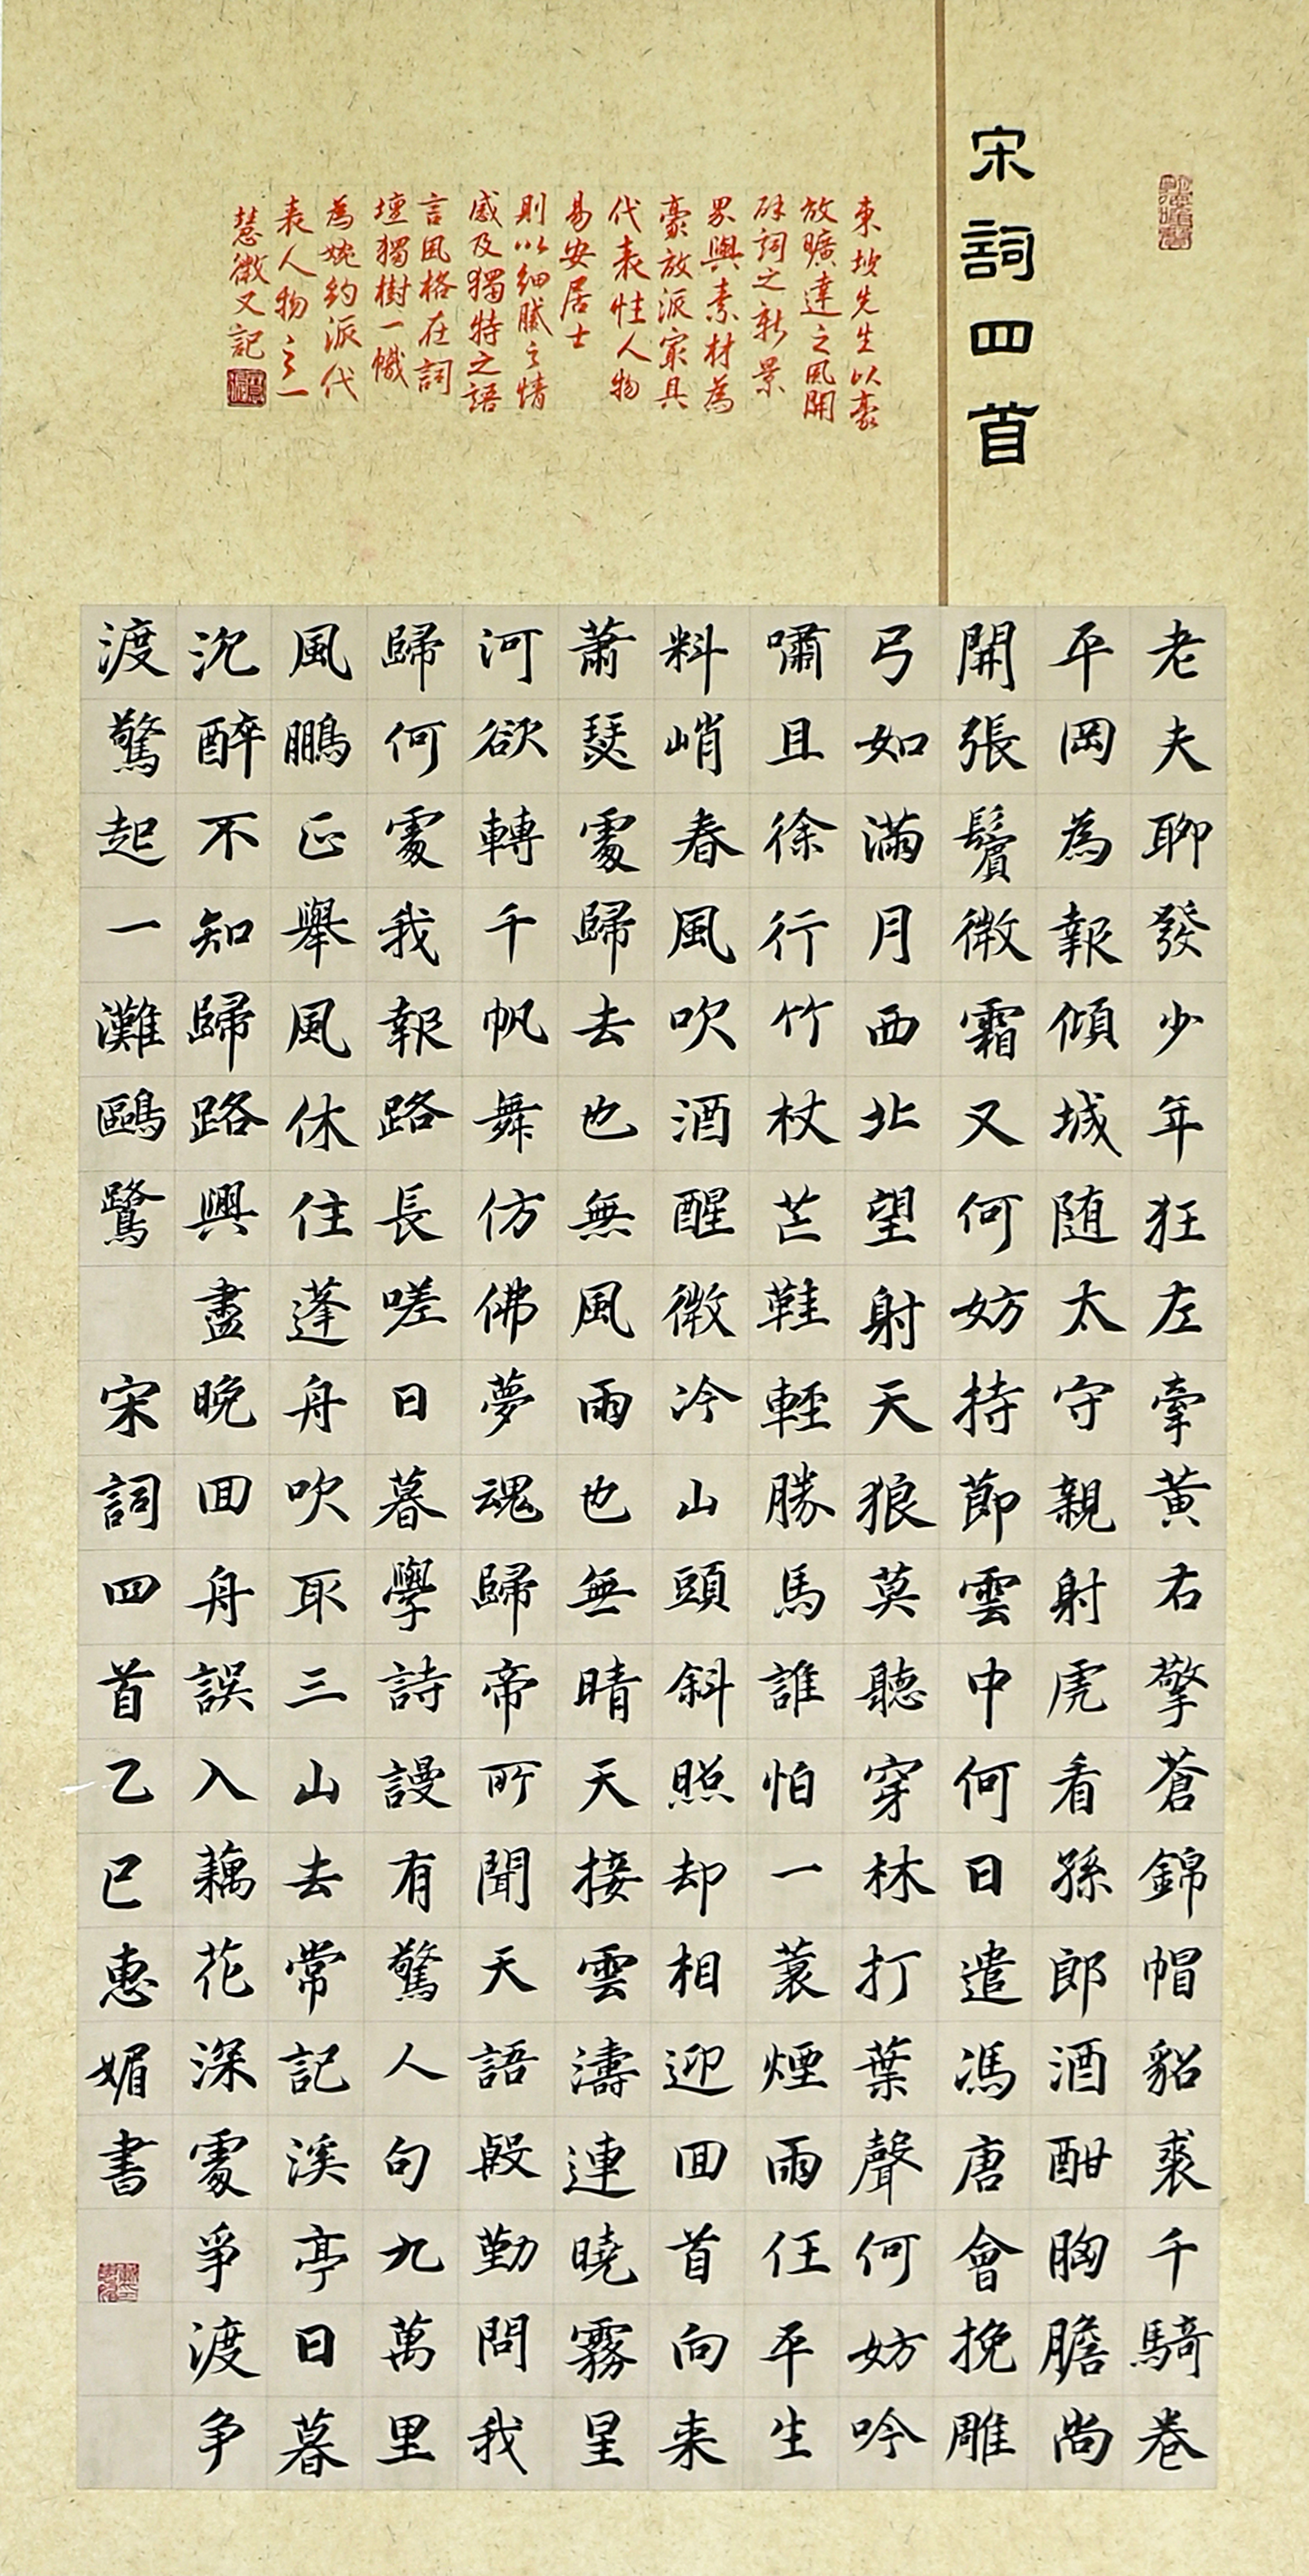 宋詞四首
東坡先生以豪
放曠達之風開
辟詞之新景
界與素材為
豪放派家具
代表性人物
易安居士
則以細膩之情
感及獨特之語
言風格在詞
壇獨樹一幟
為婉約派代
表人物之一
慧微又記
老夫聊發少年狂左牽黃右擎蒼錦帽貂裘千騎卷
平岡為報傾城隨太守親射虎看孫郎酒酣胸膽尚
開張鬢微霜又何妨持節雲中何日遣馮唐會挽雕
弓如滿月西北望射天狼莫聽穿林打葉聲何妨吟
嘯且徐行竹杖芒鞋輕勝馬誰怕一蓑煙雨任平生
料峭春風吹酒醒微冷山頭斜照却相迎回首向来
蕭瑟處歸去也無風雨也無晴天接雲濤連曉霧星
河欲轉千帆舞仿佛夢魂歸帝所聞天語殷勤問我
歸何處我報路長嗟日暮學詩謾有驚人句九萬里
風鵬正舉風休住蓬舟吹取三山去常記溪亭日暮
沉醉不知歸路興盡晚回舟誤入藕花深處爭渡争
渡驚起一灘鷗鷺 宋詞四首乙巳惠媚書